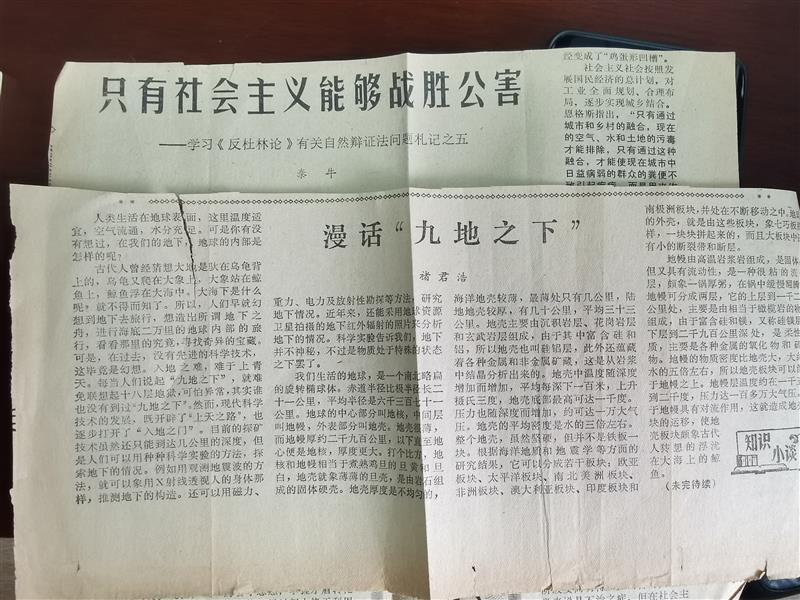 只有社会主义能够战胜公害
——学习《反杜林论》有关自然辩证法问题札记之五
秦牛
经变成了“鸡蛋形凹槽”。
社会主义社会按照发
展国民经济的总计划，对
工业全面规划、合理布
局，逐步实现城乡结合。
恩格斯指出，“只有通过
城市和乡村的融合，现在
的空气、水和土地的污毒
才能排除，只有通过这种
融合，才能使现在城市中
日益病弱的群众的粪便不
漫话“九地之下”
褚君浩
人类生活在地球表面，这里温度适
宜，空气流通，水分充足。可是你有没
有想过，在我们的地下，地球的内部是
怎样的呢？
古代人曾经猜想大地是驮在乌龟背
上的，乌龟又爬在大象上，大象站在鲸
鱼上，鲸鱼浮在大海中。大海下是什么
呢？就不得而知了。所以，人们早就幻
想到地下去旅行，想造出所谓地下之
舟，进行海底二万里的地球内部的旅
行，看看那里的究竟，寻找奇异的宝藏。
可是，在过去，没有先进的科学技术，
这毕竟是幻想。入地之难，难于上青
天。每当人们说起“九地之下”，就难
免联想起十八层地狱，可怕异常，其实谁
也没有到过“九地之下”。然而，现代科学
技术的发展，既开辟了“上天之路”，也
逐步打开了“入地之门”。目前的探矿
技术虽然还只能到达几公里的深度，但
是人们可以用种种科学实验的方法，探
索地下的情况。例如用观测地震波的方
法，就可以象用X射线透视人的身体那
样，推测地下的构造。还可以用磁力、
重力、电力及放射性勘探等方法，研究
地下情况。近年来，还能采用地球资源
卫星拍摄的地下红外辐射的照片来分析
地下的情况。科学实验告诉我们，地下
并不神秘，不过是物质处于特殊的状态
之下罢了。
我们生活的地球，是一个南北略扁
的旋转椭球体。赤道半径比极半径长二
十一公里，平均半径是六千三百七十一
公里。地球的中心部分叫地核，中间层
叫地幔，外表部分叫地壳。地壳很薄，
而地幔厚约二千九百公里，以下直至地
心便是地核，厚度更大。打个比方，地
核和地幔相当于煮熟鸡旦的旦黄和旦
白，地壳就象薄薄的旦壳，是由岩石组
成的固体硬壳。地壳厚度是不均匀的，
海洋地壳较薄，最薄处只有几公里，陆
地地壳较厚，有几十公里，平均三十三
公里。地壳主要由沉积岩层、花岗岩层
和玄武岩层组成，由于其中富含硅和
铝，所以地壳也叫硅铝层，此外还蕴藏
着各种金属和非金属矿藏，这是从岩浆
中结晶分析出来的。地壳中温度随深度
增加而增加，平均每深下一百米，上升
摄氏三度，地壳底部最高可达一千度。
压力也随深度而增加，约可达一万大气
压。地壳的平均密度是水的三倍左右。
整个地壳，虽然坚硬，但并不是铁板一
块。根据海洋地质和地震学等方面的
研究结果，它可以分成若干板块；欧亚
板块、太平洋板块、南北美洲板块、
非洲板块、澳大利亚板块、印度板块和
南极洲板块，并处在不断移动之中。地球
的外壳，就是由这些板块，象七巧板
样，一块块拼起来的，而且大板块中还
有小的断裂带和断层。
地幔由高温岩浆岩组成，是固体
但又具有流动性，是一种很粘的流
层，颇象一锅厚粥，在锅中缓慢蠕
地幔可分成两层，它的上层到一千二
公里处，主要是由相当于微榄岩的物
组成，由于富含硅和镁，又称硅镁层
下层到二千九百公里深处，是柔性
质，主要是各种金属的氧化物和硫
物。地幔的物质密度比地壳大，大约
水的五倍左右，所以地壳板块可以浮
于地幔之上。地幔层温度约在一千
到二千度，压力达一百多万大气压。
于地幔具有对流作用，这就造成地壳
块的运移，使地
壳板块颇象古代
人猜想的浮沉
在大海上的鲸
鱼。
（未完待续）
知识
小谈